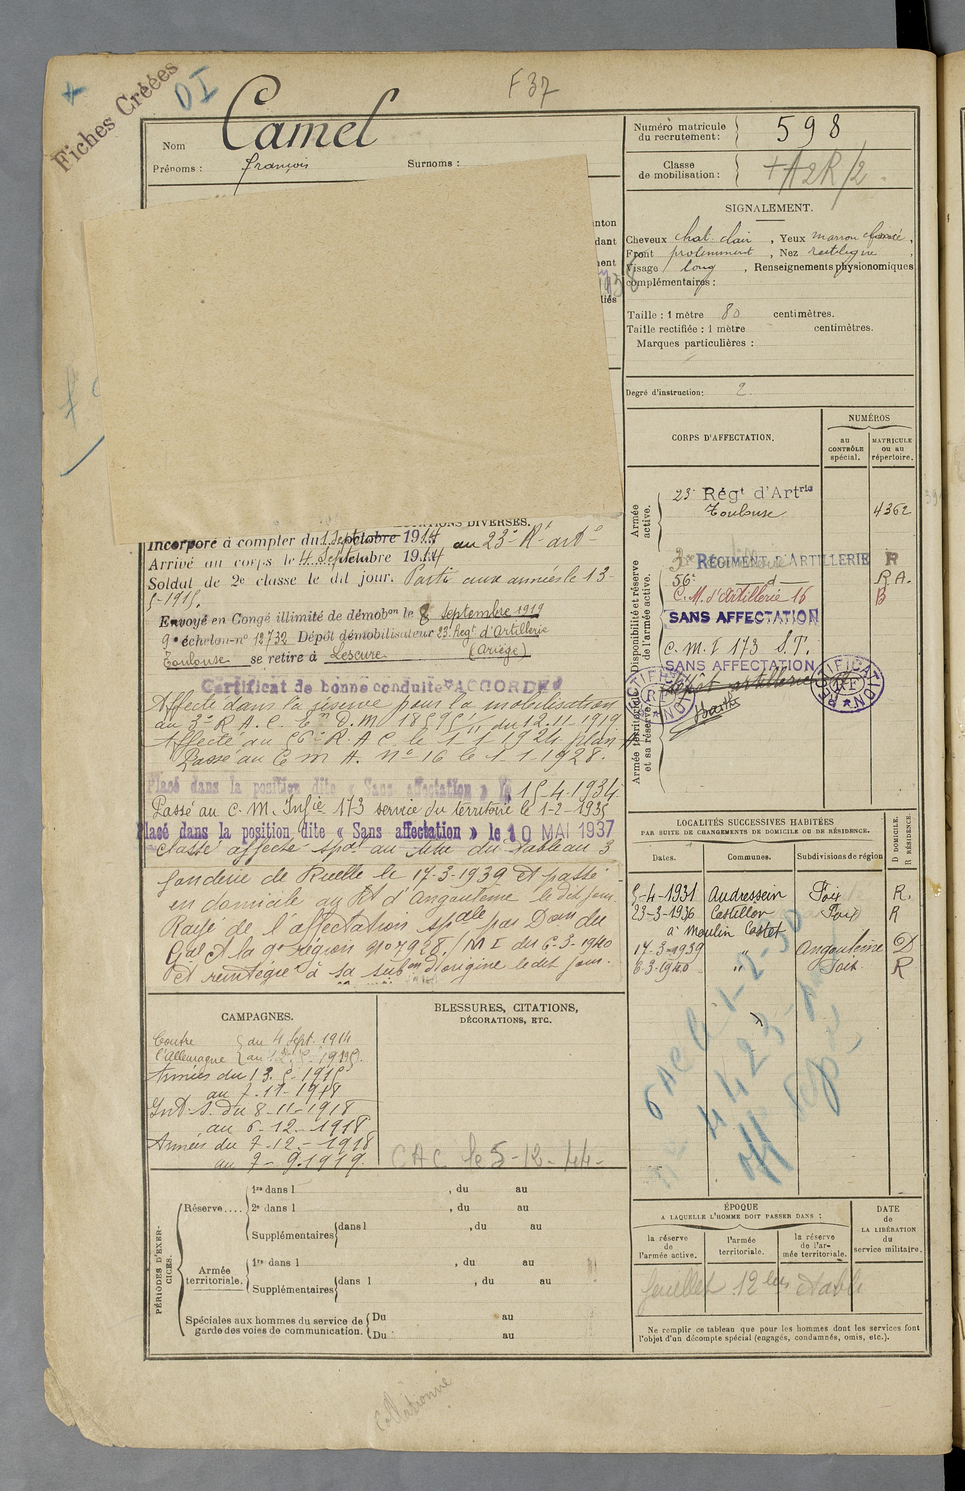 Fiches Créées
DI
F 37
Nom
Camel
Prénoms :
François
Surnoms :
Numéro matricule
du recrutement :
598
Classe
de mobilisation :
SIGNALEMENT.
Cheveux chat clair , Yeux marron foncé ,
Front proéminent , Nez rectiligne ,
Visage long , Renseignements physionomiques
complémentaires :
Taille : 1 mètre 80 centimètres.
Taille rectifiée : 1 mètre centimètres.
Marques particulières :
Degré d'instruction : 2
CORPS D'AFFECTATION.
NUMÉROS
au
CONTRÔLE
spécial.
MATRICULE
ou au
répertoire.
Armée
active.
23e Régt d'Artrie
Toulouse
4362
Disponibilité et réserve
de l'armée active.
RÉGIMENT D'ARTILLERIE R
56e d R.A.
C. M. d'artillerie 16 B
SANS AFFECTATION
C. M. I 173 S.T.
SANS AFFECTATION
Dépôt artillerie
RECTIFICATION
RF
Armée territoriale
et sa réserve.
Incorporé à compter du 1 Septembre 1914 au 23e Rt arte
Arrivé au corps le 4 Septembre 1914
Soldat de 2e classe le dit jour. Parti aux armées le 13-
5-1915.
Envoyé en Congé illimité de démobon le 8 Septembre 1919
9e échelon-no 12732 Dépôt démobilisateur 23e Régt d'Artillerie
Toulouse se retire à Lescure (Ariège)
Certificat de bonne conduite "ACCORDÉ"
Affecté dans la réserve pour la mobilisation
au 3e R. A. C. du 12.11.1919
Affecté au 56e R. A. C. le 1-1-1924 plan A
Passé au C m A. No 16 le 1-1-1928.
Placé dans la position dite « Sans affectation » le 15-4-1934
Passé au C. M. Infie 173 service du territoire le 1-2-1935
Placé dans la position dite « Sans affectation » le 10 MAI 1937
Classé affecté spal au titre du tableau 3
fonderie de Ruelle le 17-3-1939 et passé
en domicile au Rt d'Angoulême le dit jour.
Rayé de l'affectation spale par Don du
Gal Ct la 9e région no 7928/M I du 6-3-1940
et réintégré à sa subon d'origine le dit jour.
LOCALITÉS SUCCESSIVES HABITÉES
PAR SUITE DE CHANGEMENTS DE DOMICILE OU DE RÉSIDENCE.
D DOMICILE.
R RÉSIDENCE.
Dates.
Communes.
Subdivisions de région
5-4-1931 Audressein Foix R.
23-3-1936 Castillon Foix R
à Moulin Castet
17-3-1939 " Angoulême D
6-3-1940 " Foix R
CAMPAGNES.
Contre l'Allemagne du 4 Sept. 1914
Armées du 13-5-1915
au 7-11-1918
Int. S. du 8-11-1918
au 6-12-1918
Armées du 7-12-1918
au 7-9-1919.
BLESSURES, CITATIONS,
DÉCORATIONS, ETC.
CAC le 5-12-44-
PÉRIODES D'EXERCICES.
Réserve....
1re dans l , du au
2e dans l , du au
Supplémentaires dans l , du au
Armée
territoriale.
1re dans l , du au
Supplémentaires dans l , du au
Spéciales aux hommes du service de
garde des voies de communication.
Du au
Du au
ÉPOQUE
A LAQUELLE L'HOMME DOIT PASSER DANS :
la réserve
de
l'armée active.
l'armée
territoriale.
la réserve
de l'ar-
mée territoriale.
DATE
de
LA LIBÉRATION
du
service militaire.
feuillet 12 bis établi
Ne remplir ce tableau que pour les hommes dont les services font
l'objet d'un décompte spécial (engagés, condamnés, omis, etc.).
Collationné